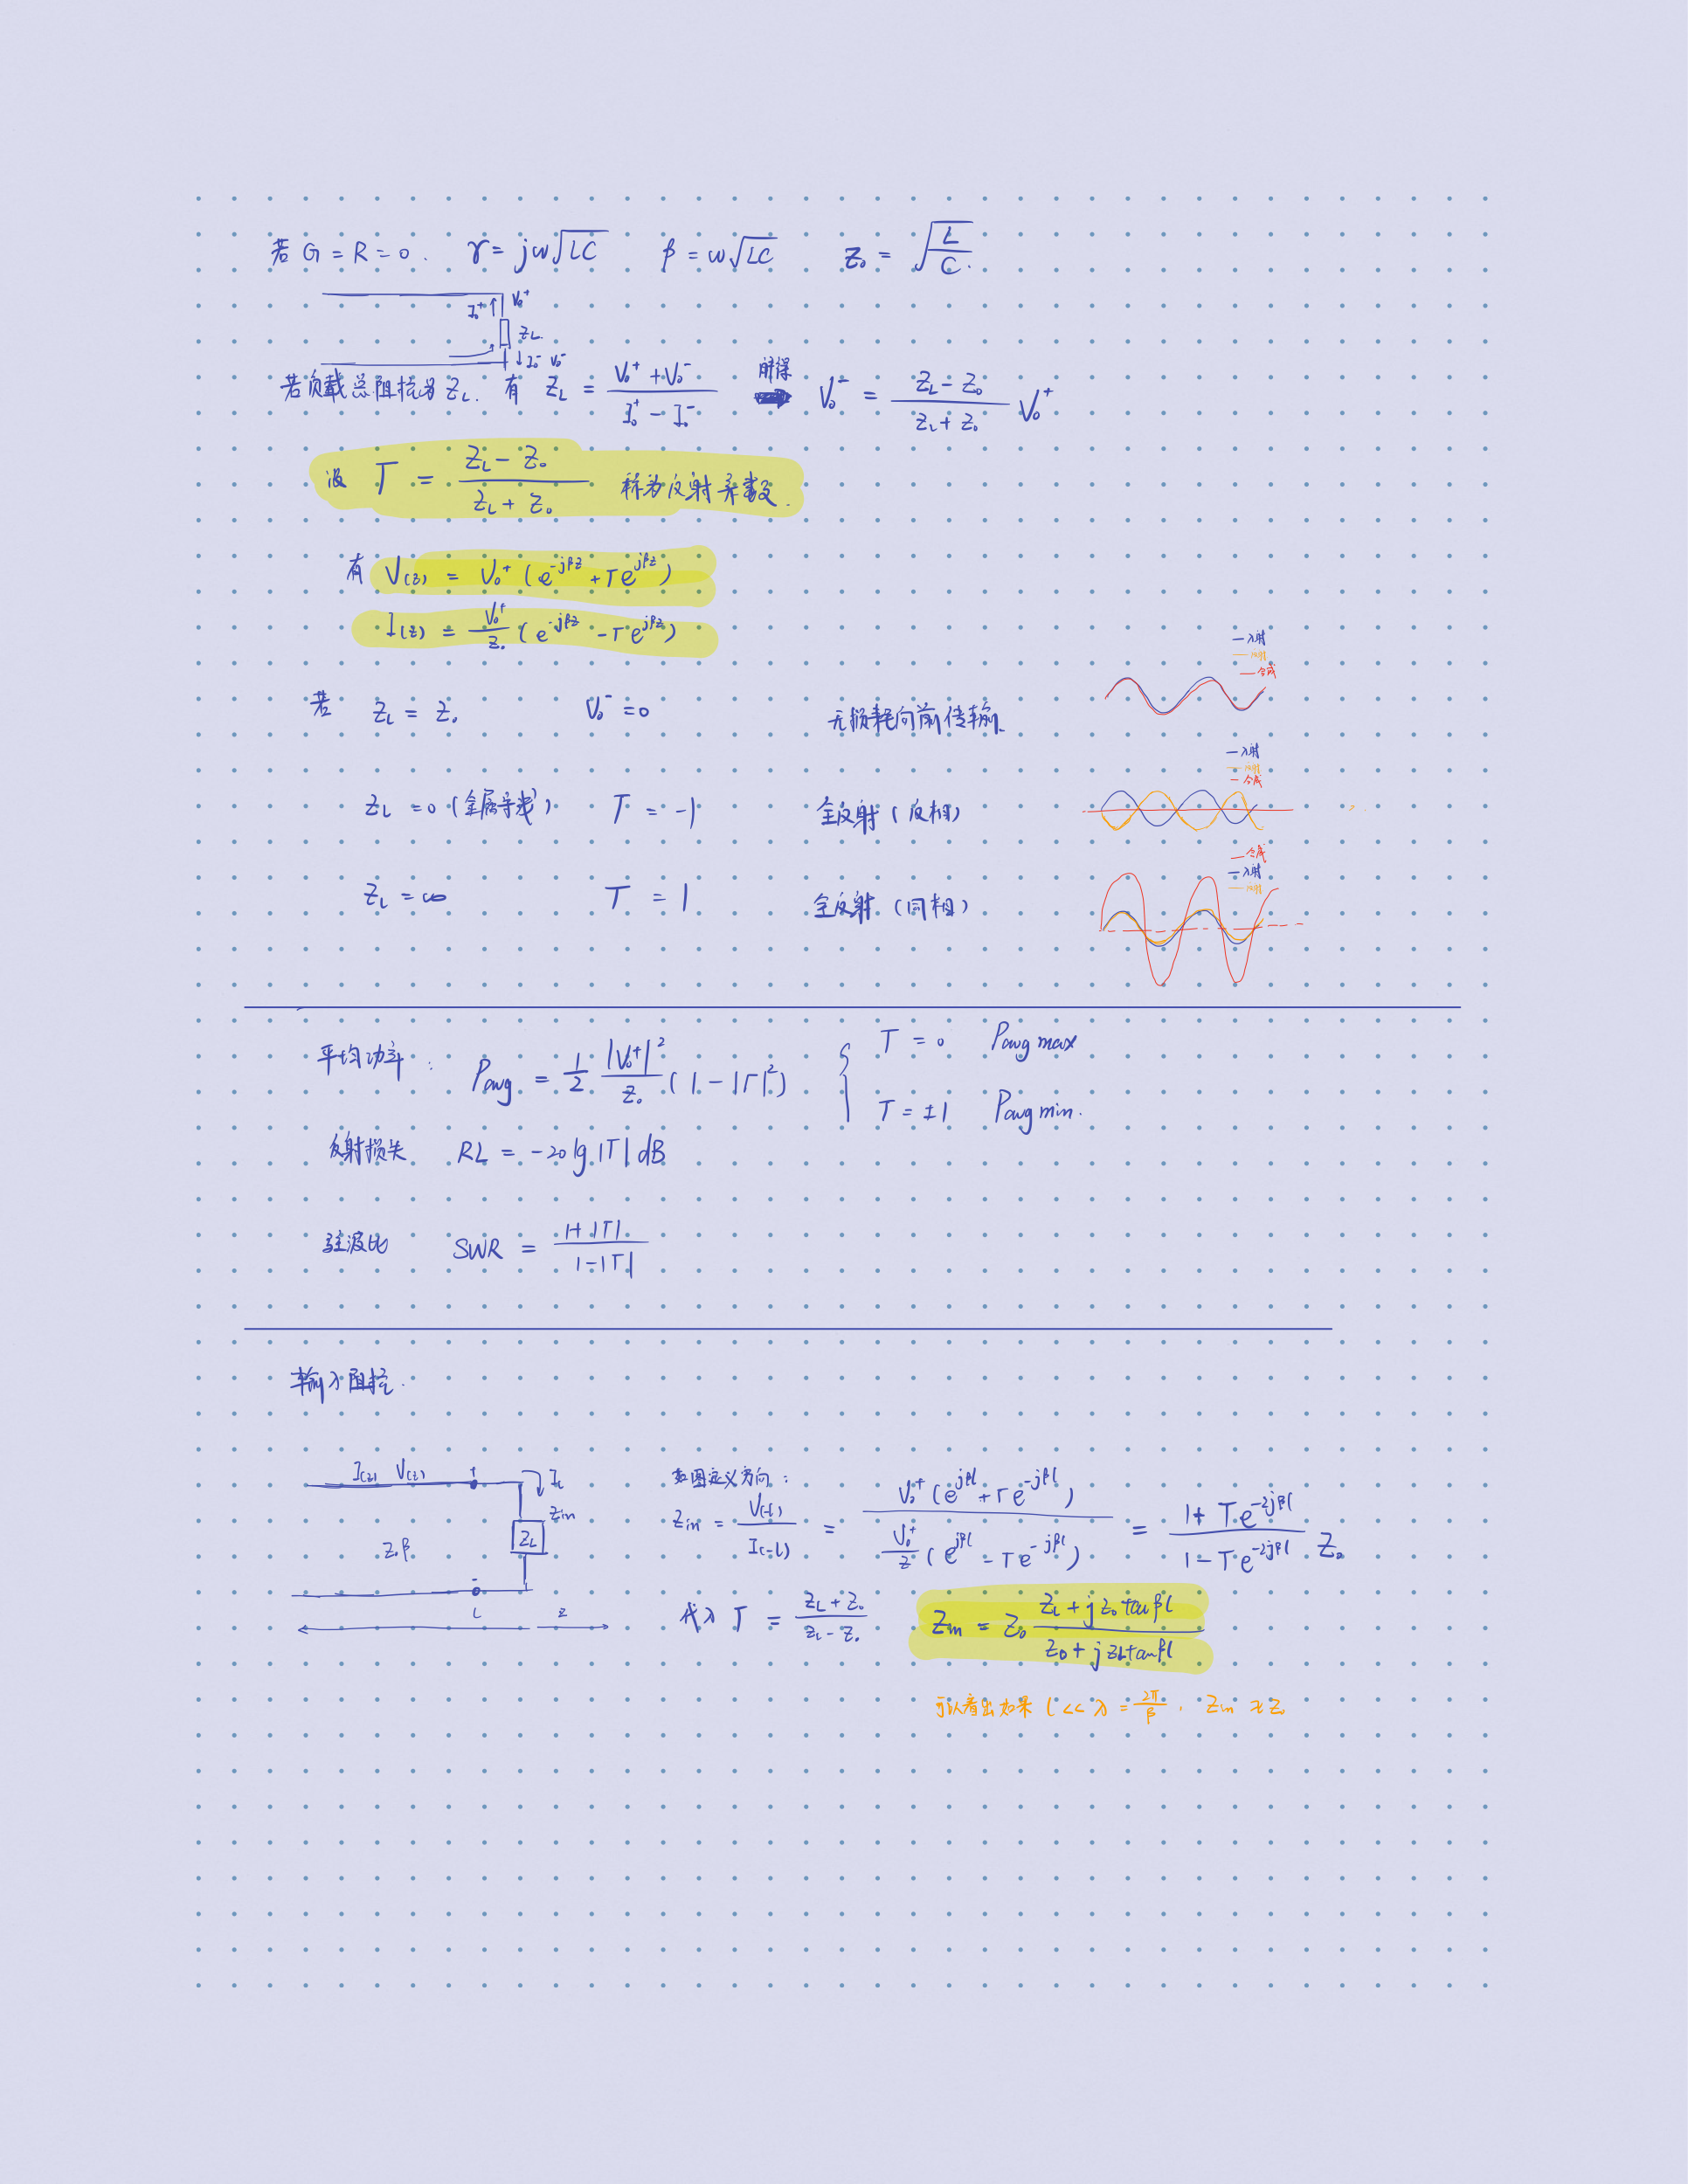 若 G = R = 0. γ = jω√LC β = ω√LC Z₀ = √(L/C).
I₀⁺ ↑ V₀⁺
Z_L
↓ I₀⁻ V₀⁻
若负载总阻抗为 Z_L. 有 Z_L = (V₀⁺ + V₀⁻)/(I₀⁺ - I₀⁻) 解得 → V₀⁻ = (Z_L - Z₀)/(Z_L + Z₀) V₀⁺
设 Γ = (Z_L - Z₀)/(Z_L + Z₀) 称为反射系数.
有 V(z) = V₀⁺ (e^{-jβz} + Γe^{jβz})
I(z) = V₀⁺/Z₀ (e^{-jβz} - Γe^{jβz})
— 入射
— 反射
— 合成
若 Z_L = Z₀ V₀⁻ = 0 无损耗向前传输.
— 入射
— 反射
— 合成
Z_L = 0 (金属导线) Γ = -1 全反射 (反相)
— 合成
— 入射
— 反射
Z_L = ∞ Γ = 1 全反射 (同相)
平均功率: P_avg = 1/2 |V₀⁺|²/Z₀ (1 - |Γ|²) { Γ = 0 P_avg max
Γ = ±1 P_avg min.
反射损失 RL = -20 lg |Γ| dB
驻波比 SWR = (1 + |Γ|)/(1 - |Γ|)
输入阻抗.
I(z) V(z) + I_L
Z_in
Z_L
Z₀ β
-
L z
如图定义方向:
Z_in = V(-l)/I(-l) = V₀⁺ (e^{jβl} + Γe^{-jβl}) / (V₀⁺/Z (e^{jβl} - Γe^{-jβl})) = (1 + Γe^{-2jβl})/(1 - Γe^{-2jβl}) Z₀
代入 Γ = (Z_L + Z₀)/(Z_L - Z₀) Z_in = Z₀ (Z_L + jZ₀ tanβl)/(Z₀ + jZ_L tanβl)
可以看出如果 l << λ = 2π/β , Z_in ≈ Z₀